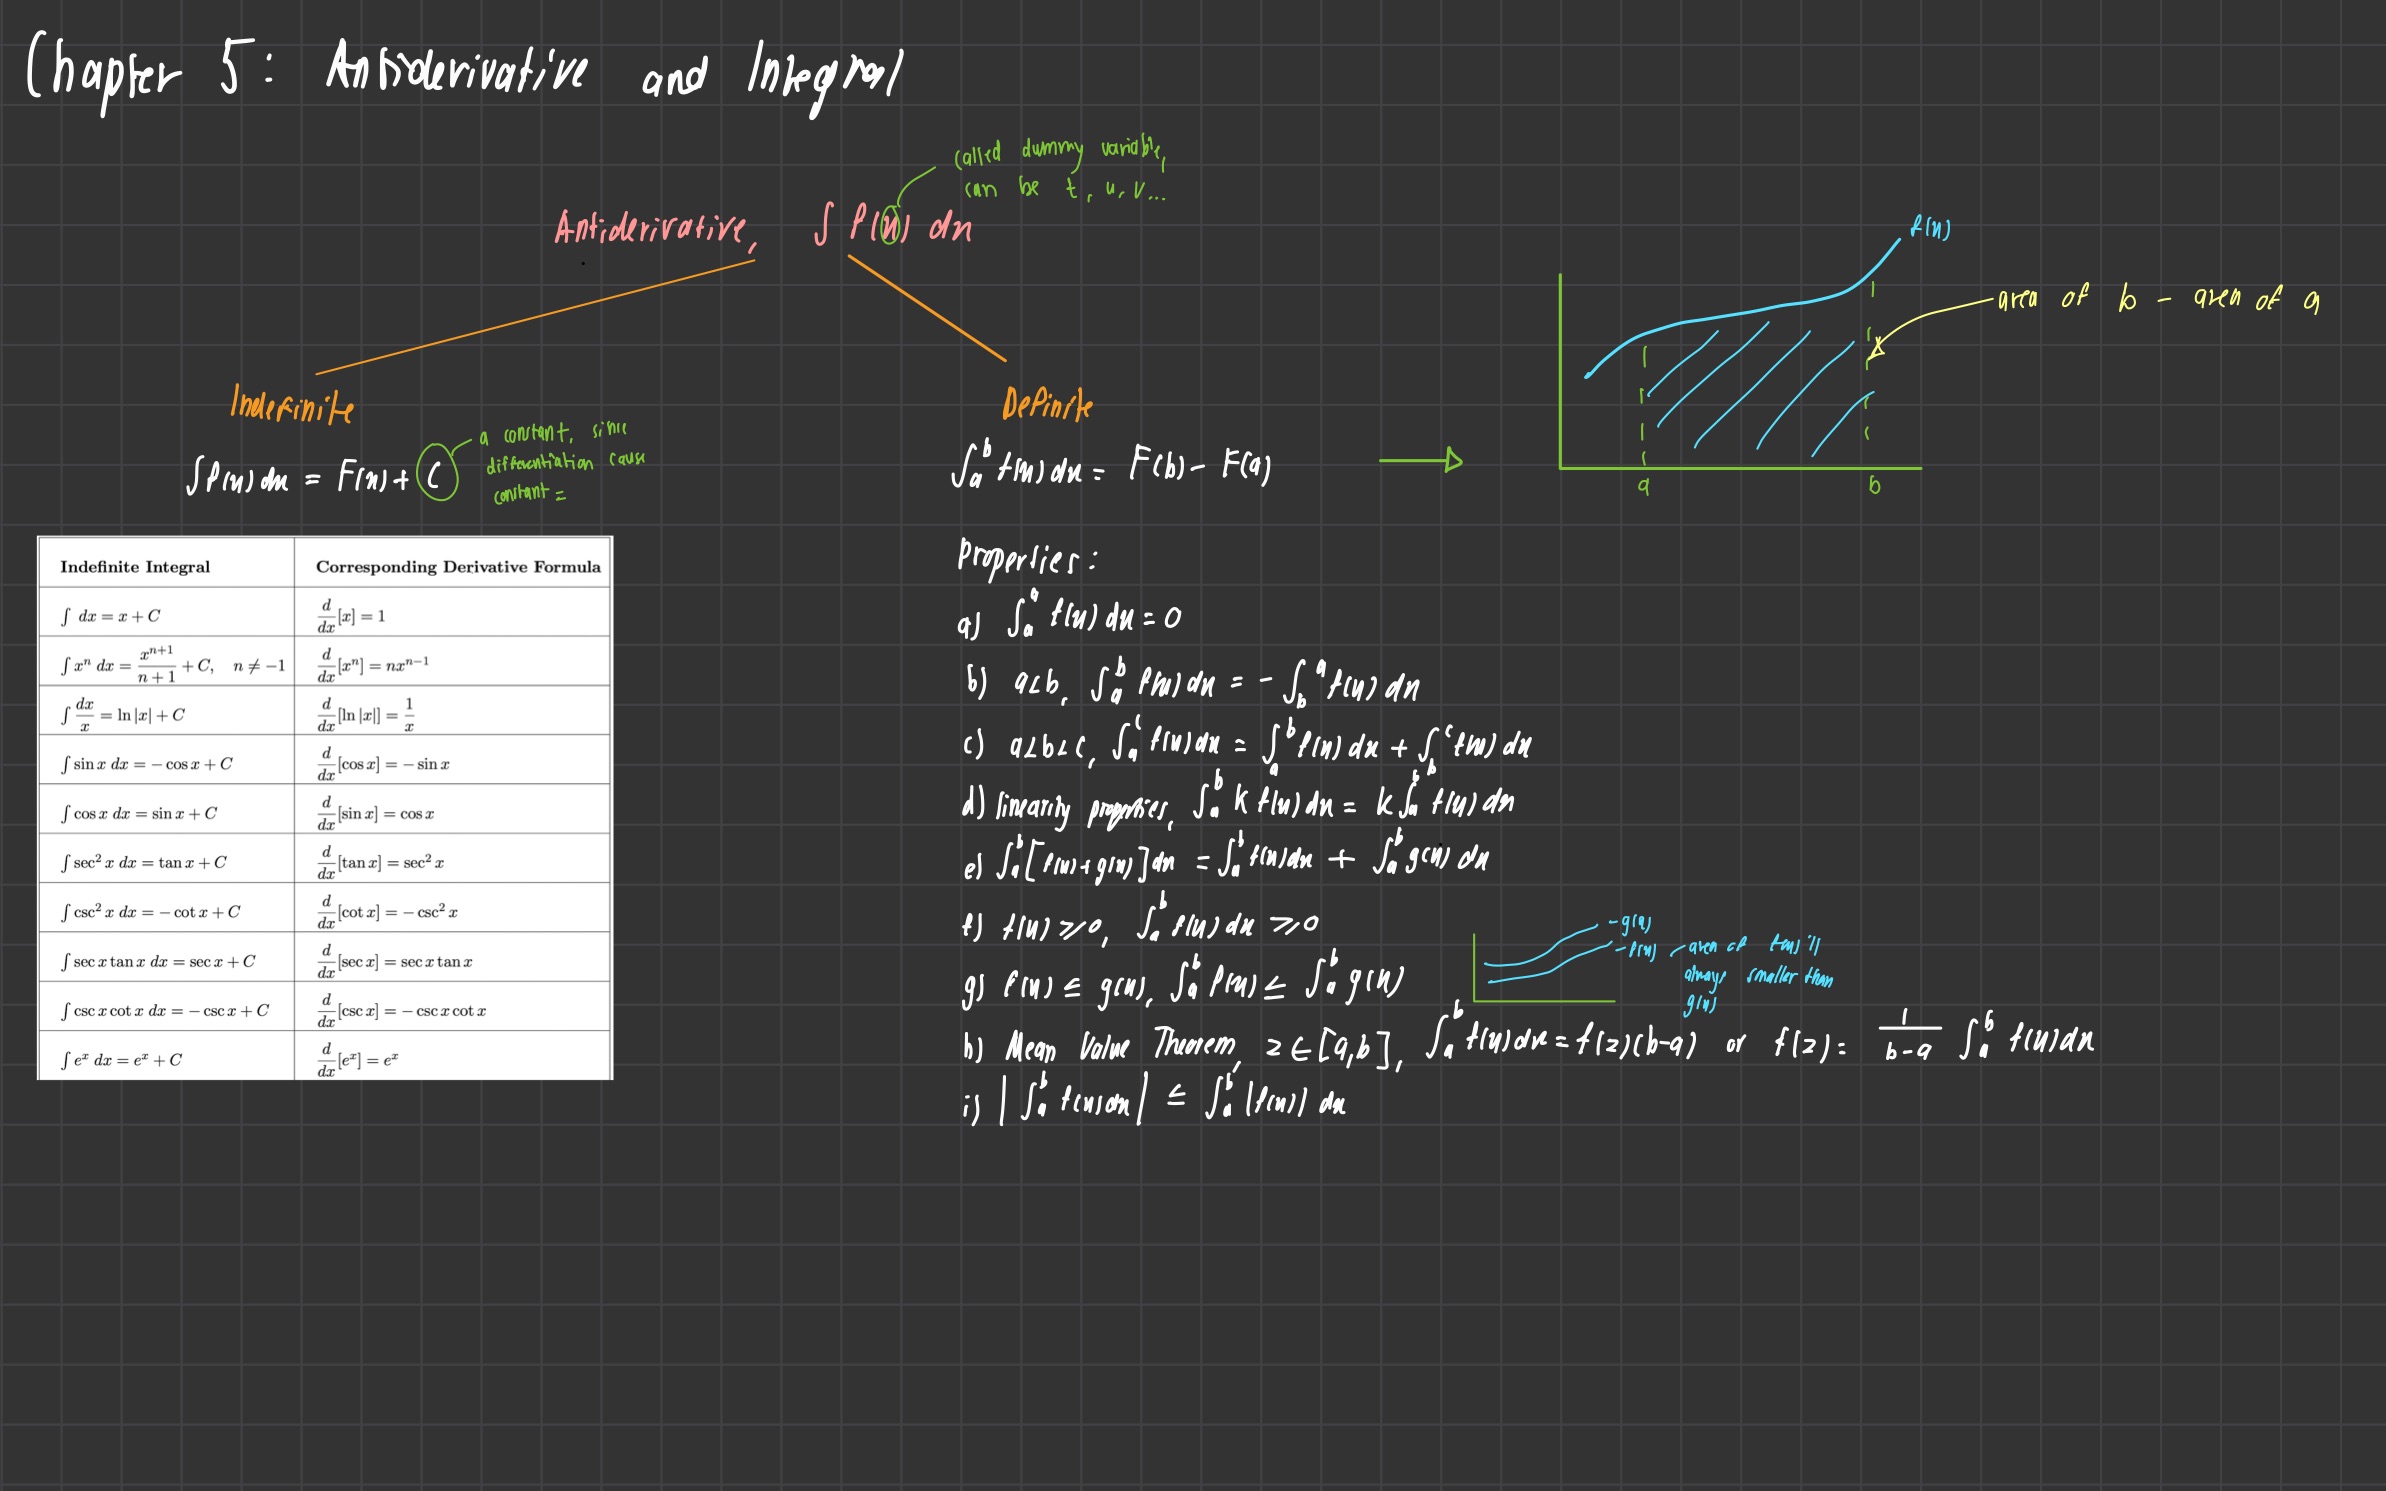 Chapter 5: Antiderivative and Integral
called dummy variable,
can be t, u, v...
Antiderivative, ∫ f(x) dx
f(x)
area of b - area of a
Indefinite
Definite
∫ f(x) dx = F(x) + C
a constant, since
differentiation cause
constant =
∫ₐᵇ f(x) dx = F(b) - F(a)
a b
Indefinite Integral Corresponding Derivative Formula
∫ dx = x + C d/dx [x] = 1
∫ xⁿ dx = xⁿ⁺¹/(n + 1) + C, n ≠ −1 d/dx [xⁿ] = nxⁿ⁻¹
∫ dx/x = ln |x| + C d/dx [ln |x|] = 1/x
∫ sin x dx = − cos x + C d/dx [cos x] = − sin x
∫ cos x dx = sin x + C d/dx [sin x] = cos x
∫ sec² x dx = tan x + C d/dx [tan x] = sec² x
∫ csc² x dx = − cot x + C d/dx [cot x] = − csc² x
∫ sec x tan x dx = sec x + C d/dx [sec x] = sec x tan x
∫ csc x cot x dx = − csc x + C d/dx [csc x] = − csc x cot x
∫ eˣ dx = eˣ + C d/dx [eˣ] = eˣ
Properties:
a) ∫ₐᵃ f(x) dx = 0
b) a<b, ∫ₐᵇ f(x) dx = - ∫_b^a f(x) dx
c) a<b<c, ∫_a^c f(x) dx = ∫_a^b f(x) dx + ∫_b^c f(x) dx
d) linearity properties, ∫ₐᵇ k f(x) dx = k ∫ₐᵇ f(x) dx
e) ∫ₐᵇ [f(x) + g(x)] dx = ∫ₐᵇ f(x) dx + ∫ₐᵇ g(x) dx
f) f(x) ≥ 0, ∫ₐᵇ f(x) dx ≥ 0
g) f(x) ≤ g(x), ∫ₐᵇ f(x) ≤ ∫ₐᵇ g(x)
- g(x)
- f(x)
area of f(x)'ll
always smaller than
g(x)
h) Mean Value Theorem, z ∈ [a,b], ∫ₐᵇ f(x) dx = f(z)(b-a) or f(z) = 1/(b-a) ∫ₐᵇ f(x) dx
i) |∫ₐᵇ f(x) dx| ≤ ∫ₐᵇ |f(x)| dx